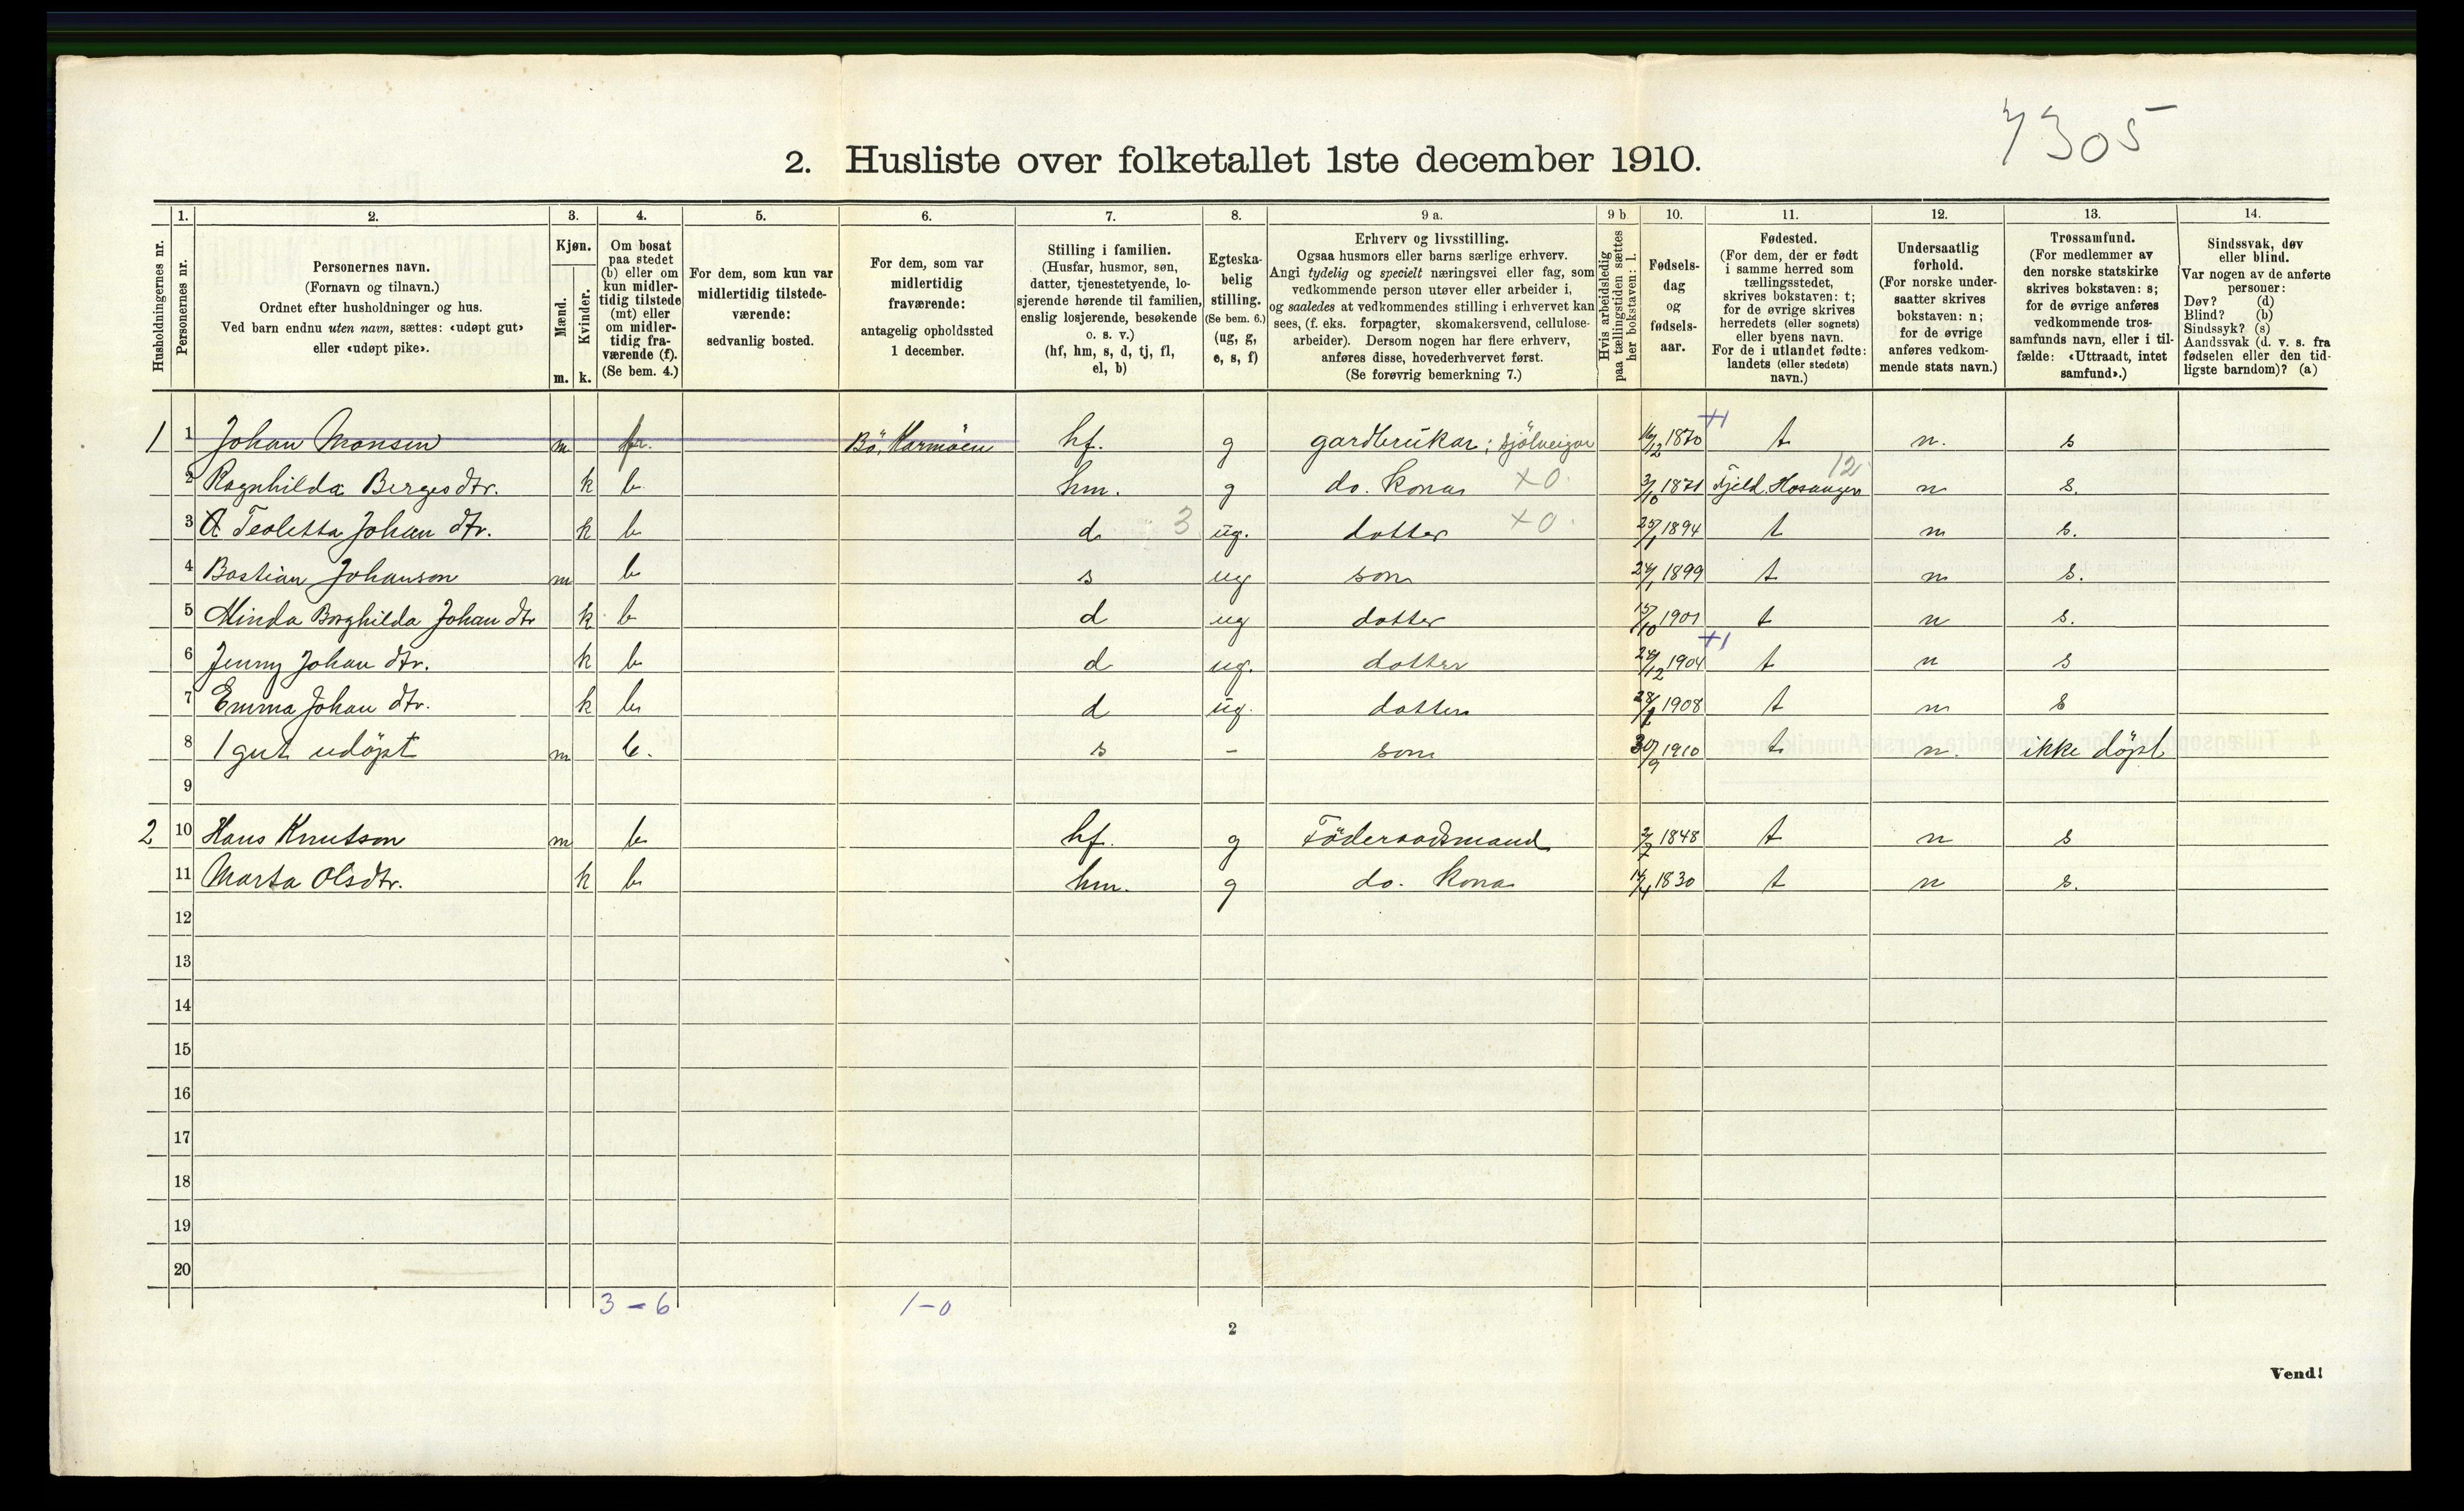 7305
2. Husliste over folketallet 1ste december 1910.
Husholdningernes nr.
1. Personernes nr.
2. Personernes navn.
(Fornavn og tilnavn.)
Ordnet efter husholdninger og hus.
Ved barn endnu uten navn, sættes: «udøpt gut»
eller «udøpt pike».
3. Kjøn.
Mænd. m.
Kvinder. k.
4. Om bosat
paa stedet
(b) eller om
kun midler-
tidig tilstede
(mt) eller
om midler-
tidig fra-
værende (f).
(Se bem. 4.)
5. For dem, som kun var
midlertidig tilstede-
værende:
sedvanlig bosted.
6. For dem, som var
midlertidig
fraværende:
antagelig opholdssted
1 december.
7. Stilling i familien.
(Husfar, husmor, søn,
datter, tjenestetyende, lo-
sjerende hørende til familien,
enslig losjerende, besøkende
o. s. v.)
(hf, hm, s, d, tj, fl,
el, b)
8. Egteska-
belig
stilling.
(Se bem. 6.)
(ug, g,
e, s, f)
9 a. Erhverv og livsstilling.
Ogsaa husmors eller barns særlige erhverv.
Angi tydelig og specielt næringsvei eller fag, som
vedkommende person utøver eller arbeider i,
og saaledes at vedkommendes stilling i erhvervet kan
sees, (f. eks. forpagter, skomakersvend, cellulose-
arbeider). Dersom nogen har flere erhverv,
anføres disse, hovederhvervet først.
(Se forøvrig bemerkning 7.)
9 b Hvis arbeidsledig
paa tællingstiden sættes
her bokstaven: l.
10. Fødsels-
dag
og
fødsels-
aar.
11. Fødested.
(For dem, der er født
i samme herred som
tællingsstedet,
skrives bokstaven: t;
for de øvrige skrives
herredets (eller sognets)
eller byens navn.
For de i utlandet fødte:
landets (eller stedets)
navn.)
12. Undersaatlig
forhold.
(For norske under-
saatter skrives
bokstaven: n;
for de øvrige
anføres vedkom-
mende stats navn.)
13. Trossamfund.
(For medlemmer av
den norske statskirke
skrives bokstaven: s;
for de øvrige anføres
vedkommende tros-
samfunds navn, eller i til-
fælde: «Uttraadt, intet
samfund».)
14. Sindssvak, døv
eller blind.
Var nogen av de anførte
personer:
Døv? (d)
Blind? (b)
Sindssyk? (s)
Aandssvak (d. v. s. fra
fødselen eller den tid-
ligste barndom)? (a)
1 1 Johan Monsen m Bö, Karmöen hf. g gardbrukar; sjölveigar 16/12 1870 +1 t n. s
2 Ragnhilda Berges dtr. k b hm. g do. kona +0. 3/10 1871 Fjeld, Hosanger 12 n s.
3 Teoletta Johan dtr. k b d 3 ug. dotter +0. 25/1 1894 t n s.
4 Bastian Johanson m b s ug son 24/1 1899 t n s.
5 Minda Borghilda Johan dtr k b d ug dotter 15/10 1901 t n s.
6 Jenny Johan dtr. k b d ug. dotter 24/12 1904 +1 t n s
7 Emma Johan dtr. k b d ug. dotter 1908 t n s
8 1 gut udöpt m b. s - son 30/9 1910 t n. ikke döpt
9
2 10 Hans Knutson m b hf. g Föderaadsmand 1848 t n s
11 Marta Olsdtr. k b hm. g do. kona 14/4 1830 t n s.
12
13
14
15
16
17
18
19
20
3 - 6 1 - 0
2
Vend!